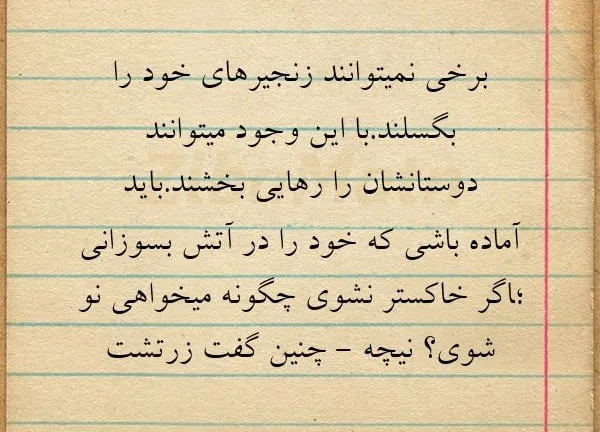 برخی نمیتوانند زنجیرهای خود را
بگسلند.با این وجود میتوانند
دوستانشان را رهایی بخشند.باید
آماده باشی که خود را در آتش بسوزانی
؛اگر خاکستر نشوی چگونه میخواهی نو
شوی؟ نیچه - چنین گفت زرتشت